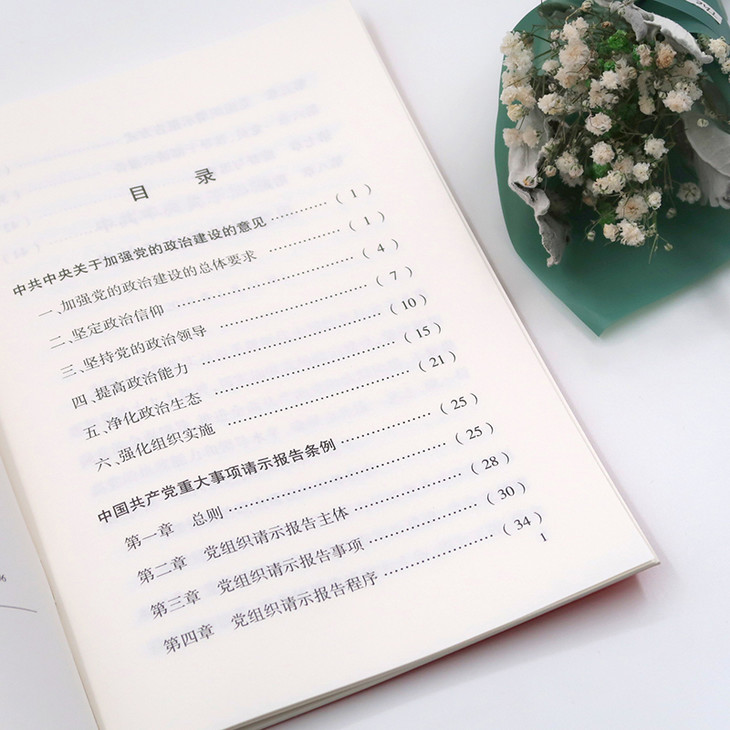 目 录
中共中央关于加强党的政治建设的意见 ………… ( 1 )
一、加强党的政治建设的总体要求 ………… ( 1 )
二、坚定政治信仰 ………… ( 4 )
三、坚持党的政治领导 ………… ( 7 )
四、提高政治能力 ………… ( 10 )
五、净化政治生态 ………… ( 15 )
六、强化组织实施 ………… ( 21 )
中国共产党重大事项请示报告条例 ………… ( 25 )
第一章 总则 ………… ( 25 )
第二章 党组织请示报告主体 ………… ( 28 )
第三章 党组织请示报告事项 ………… ( 30 )
第四章 党组织请示报告程序 ………… ( 34 )
1